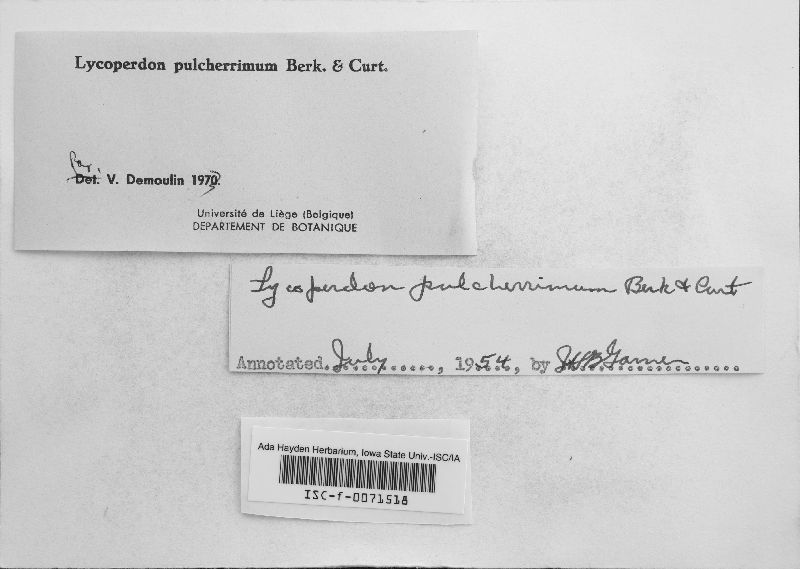 Lycoperdon pulcherrimum Berk. & Curt.
Rev.
Det. V. Demoulin 1973.
Université de Liège (Belgique)
DEPARTEMENT DE BOTANIQUE
Lycoperdon pulcherrimum Berk & Curt
Annotated July, 1954, by
Ada Hayden Herbarium, Iowa State Univ.-ISC/IA
ISC-f-0071518